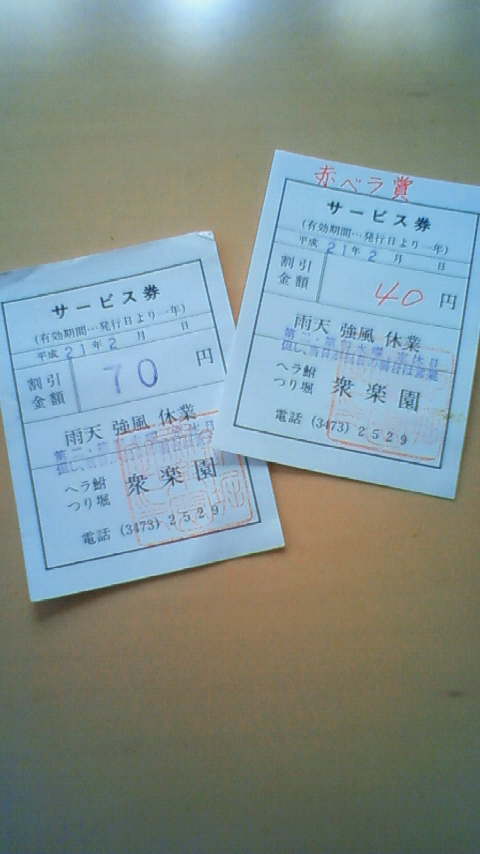 サービス券
(有効期間…発行日より一年)
平成 21年 2月 日
割引金額 70円
雨天 強風 休業
ヘラ鮒
つり堀 衆楽園
電話 (3473) 2529
赤ベラ賞
サービス券
(有効期間…発行日より一年)
平成 21年 2月 日
割引金額 40円
雨天 強風 休業
ヘラ鮒
つり堀 衆楽園
電話 (3473) 2529